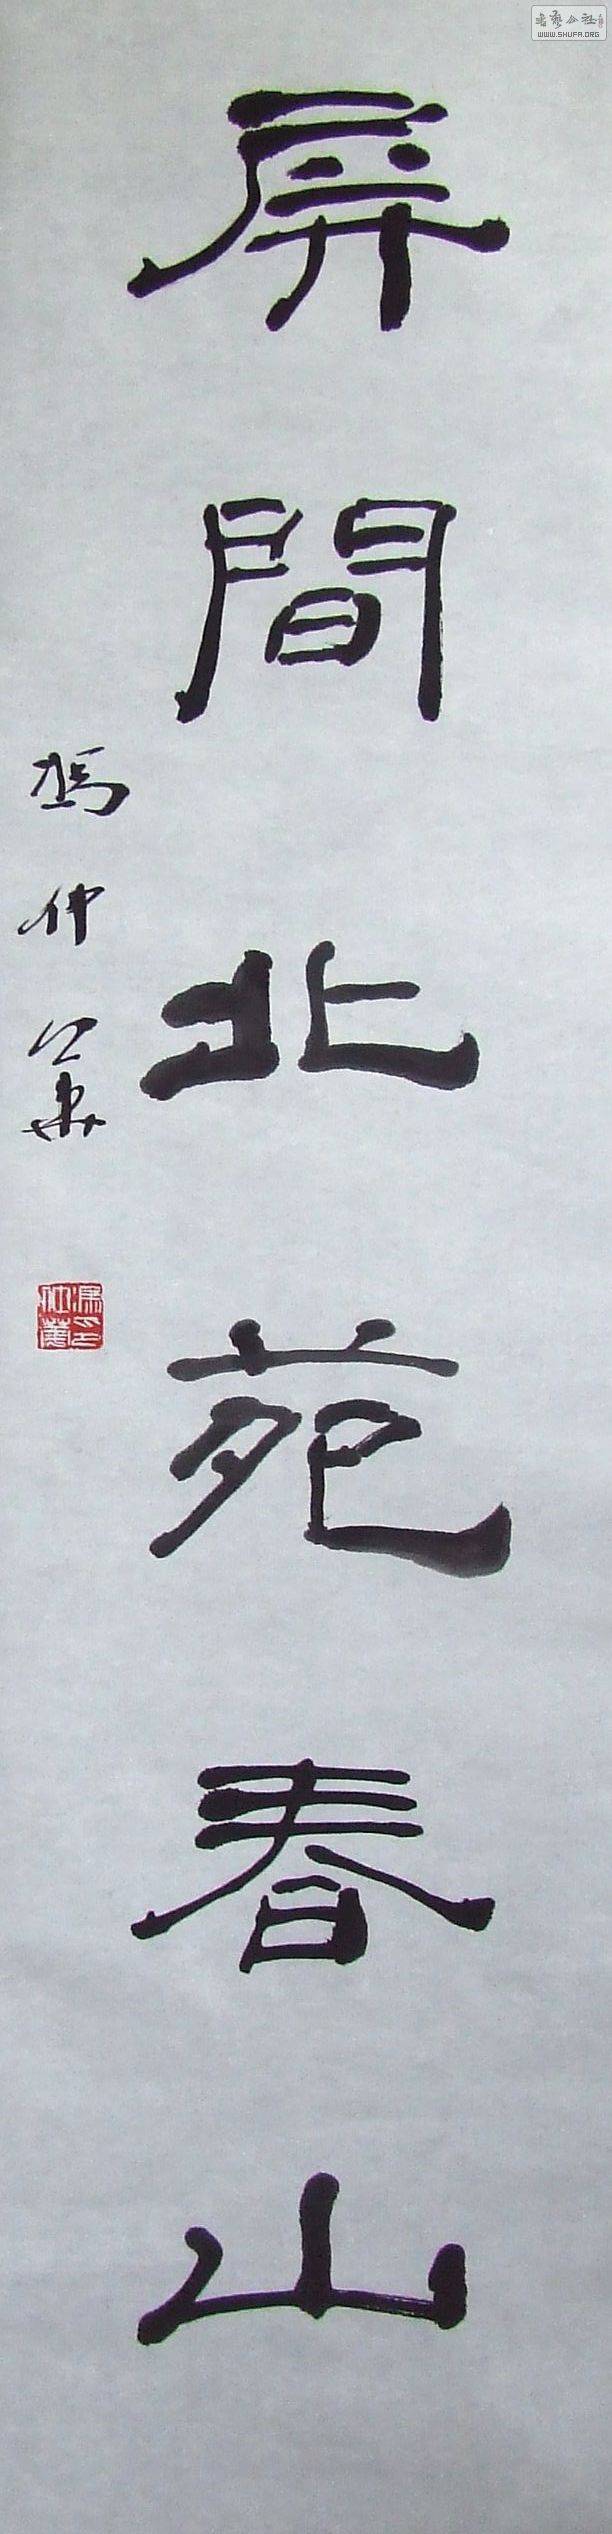 屏間北苑春山
馮仲華
書藝公社
WWW.SHUFA.ORG